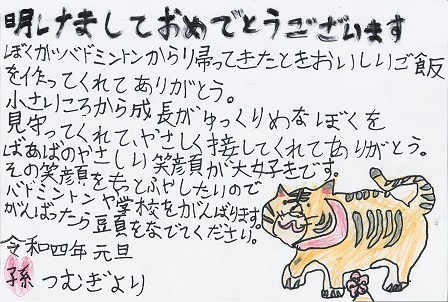 明けましておめでとうございます
ぼくがバドミントンから帰ってきたときおいしいご飯
を作ってくれてありがとう。
小さいころから成長がゆっくりめなぼくを
見守ってくれて、やさしく接してくれてありがとう。
ばあばのやさしい笑顔が大好きです。
その笑顔をもっとふやしたいので
バドミントンや学校をがんばります。
がんばったら頭をなでてください。
令和四年 元旦
孫 つむぎより